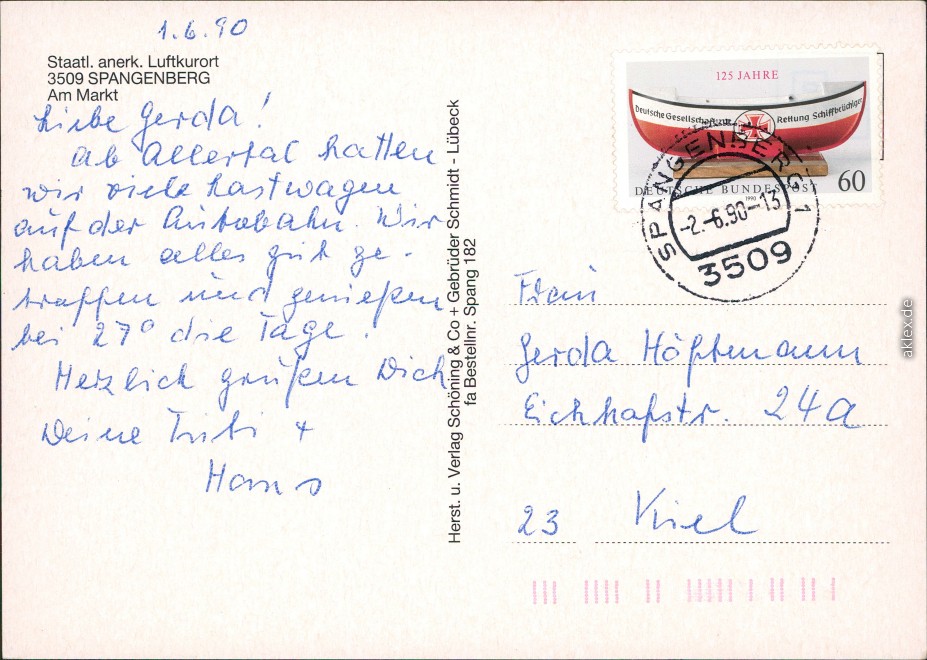 1.6.90
Staatl. anerk. Luftkurort
3509 SPANGENBERG
Am Markt
Liebe Gerda!
ab Allertal hatten
wir viele Lastwagen
auf der Autobahn. Wir
haben alles gut ge-
troffen und genießen
bei 27° die Tage.
Herzlich grüßen Dich
Deine +
Hans
Herst. u. Verlag Schöning & Co + Gebrüder Schmidt - Lübeck
fa Bestellnr. Spang 182
125 JAHRE
Deutsche Gesellschaft zur Rettung Schiffbrüchiger
DEUTSCHE BUNDESPOST 60
1990
SPANGENBERG 1
-2.-6.90-13
3509
Frau
Gerda
24a
23 Kiel
aklex.de